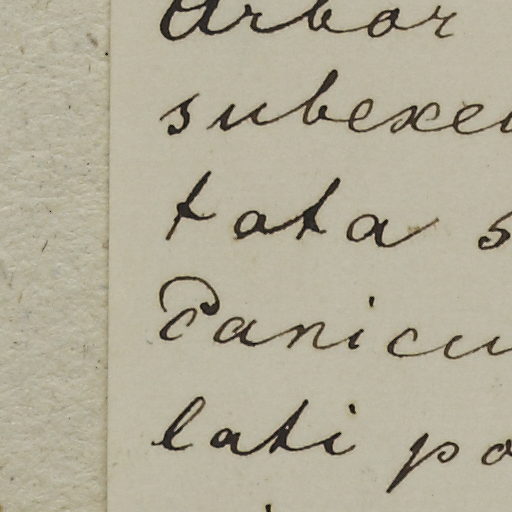 Arbor
subexeu
tata s
Panicu
lati po